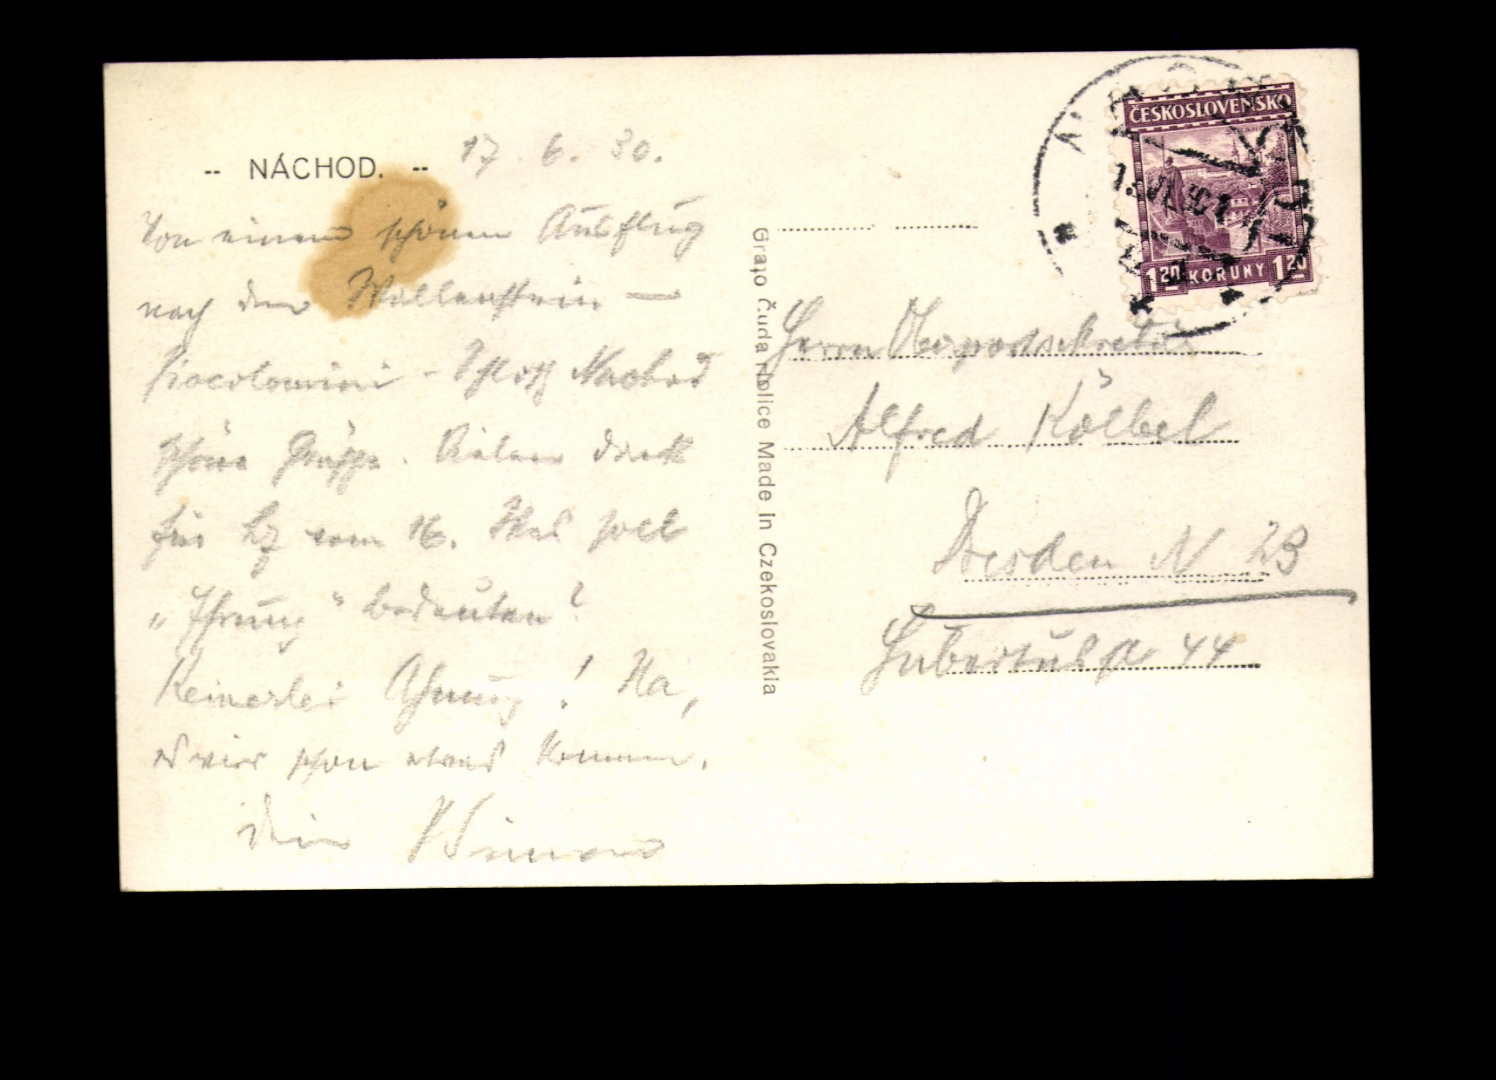 -- NÁCHOD. -- 17. 6. 30.
Von einem schönen Ausflug
nach dem Wallenstein —
Piccolomini - Schloß Nachod
schöne Grüße. direkt
für vom 16. Was soll
" " bedeuten?
Keinerlei Ahnung! Na,
es wird schon etwas kommen.
Dein
Grafo Čuda Holice Made in Czekoslovakia
ČESKOSLOVENSKO
1 20 KORUNY 1 20
Herrn Oberpostsekretär
Alfred Kölbel
Dresden N 23
Hubertusstr 44